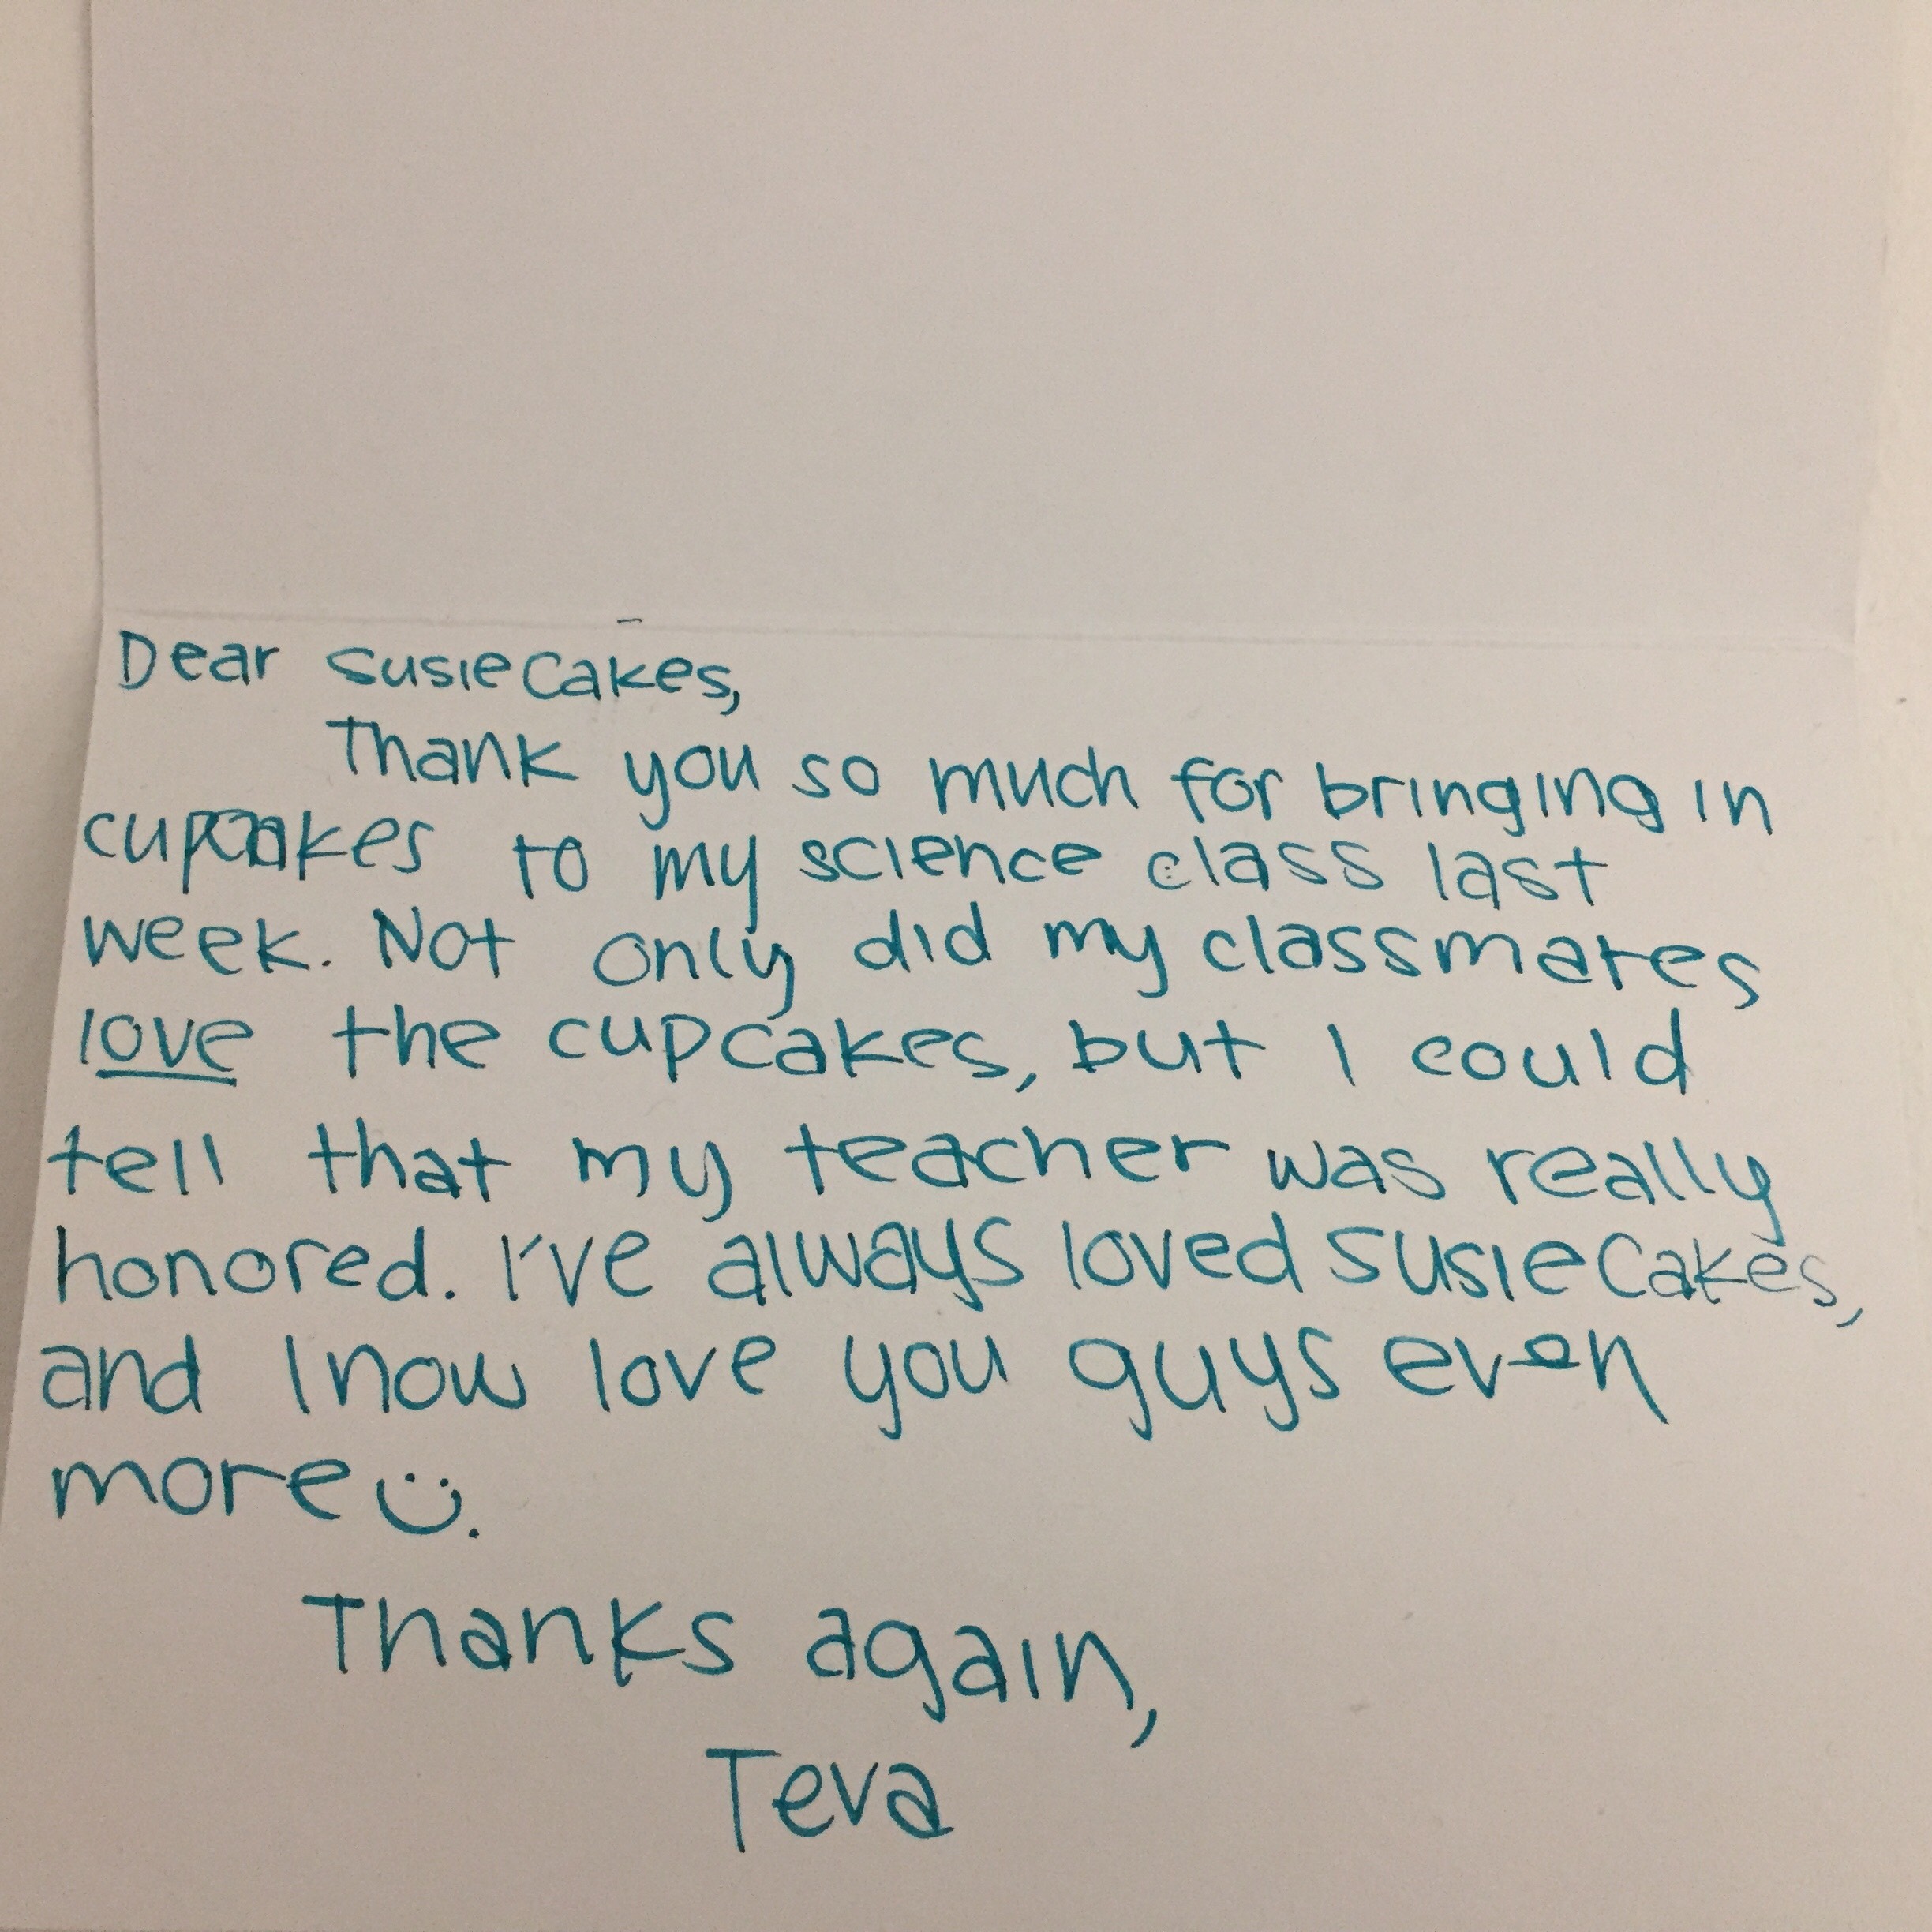 Dear SusieCakes,
Thank you so much for bringing in
cupcakes to my science class last
week. Not only did my classmates
love the cupcakes, but I could
tell that my teacher was really
honored. I've always loved SusieCakes,
and I now love you guys even
more☺.
Thanks again,
Teva